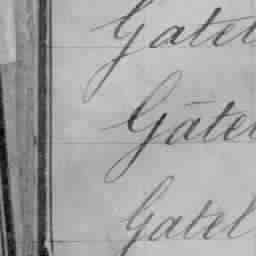 Gatel
Gātel
Gatel